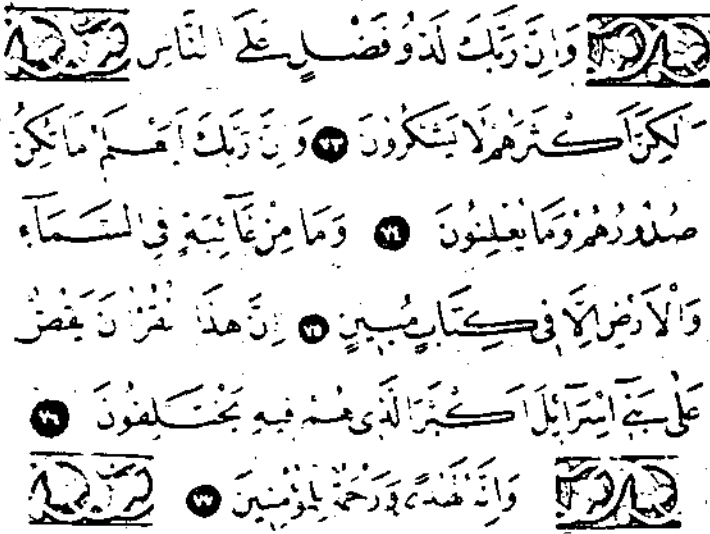 وَاِنَّ رَبَّكَ لَذُو فَضْلٍ عَلَى النَّاسِ
وَلٰكِنَّ اَكْثَرَهُمْ لَا يَشْكُرُونَ ﴿٧٣﴾ وَاِنَّ رَبَّكَ لَيَعْلَمُ مَا تُكِنُّ
صُدُورُهُمْ وَمَا يُعْلِنُونَ ﴿٧٤﴾ وَمَا مِنْ غَآئِبَةٍ فِي السَّمَآءِ
وَالْاَرْضِ اِلَّا فِي كِتَابٍ مُبِينٍ ﴿٧٥﴾ اِنَّ هٰذَا الْقُرْاٰنَ يَقُصُّ
عَلٰى بَنِيٓ اِسْرَآئِلَ اَكْثَرَ الَّذِي هُمْ فِيهِ يَخْتَلِفُونَ ﴿٧٦﴾
وَاِنَّهُ لَهُدًى وَرَحْمَةٌ لِلْمُؤْمِنِينَ ﴿٧٧﴾